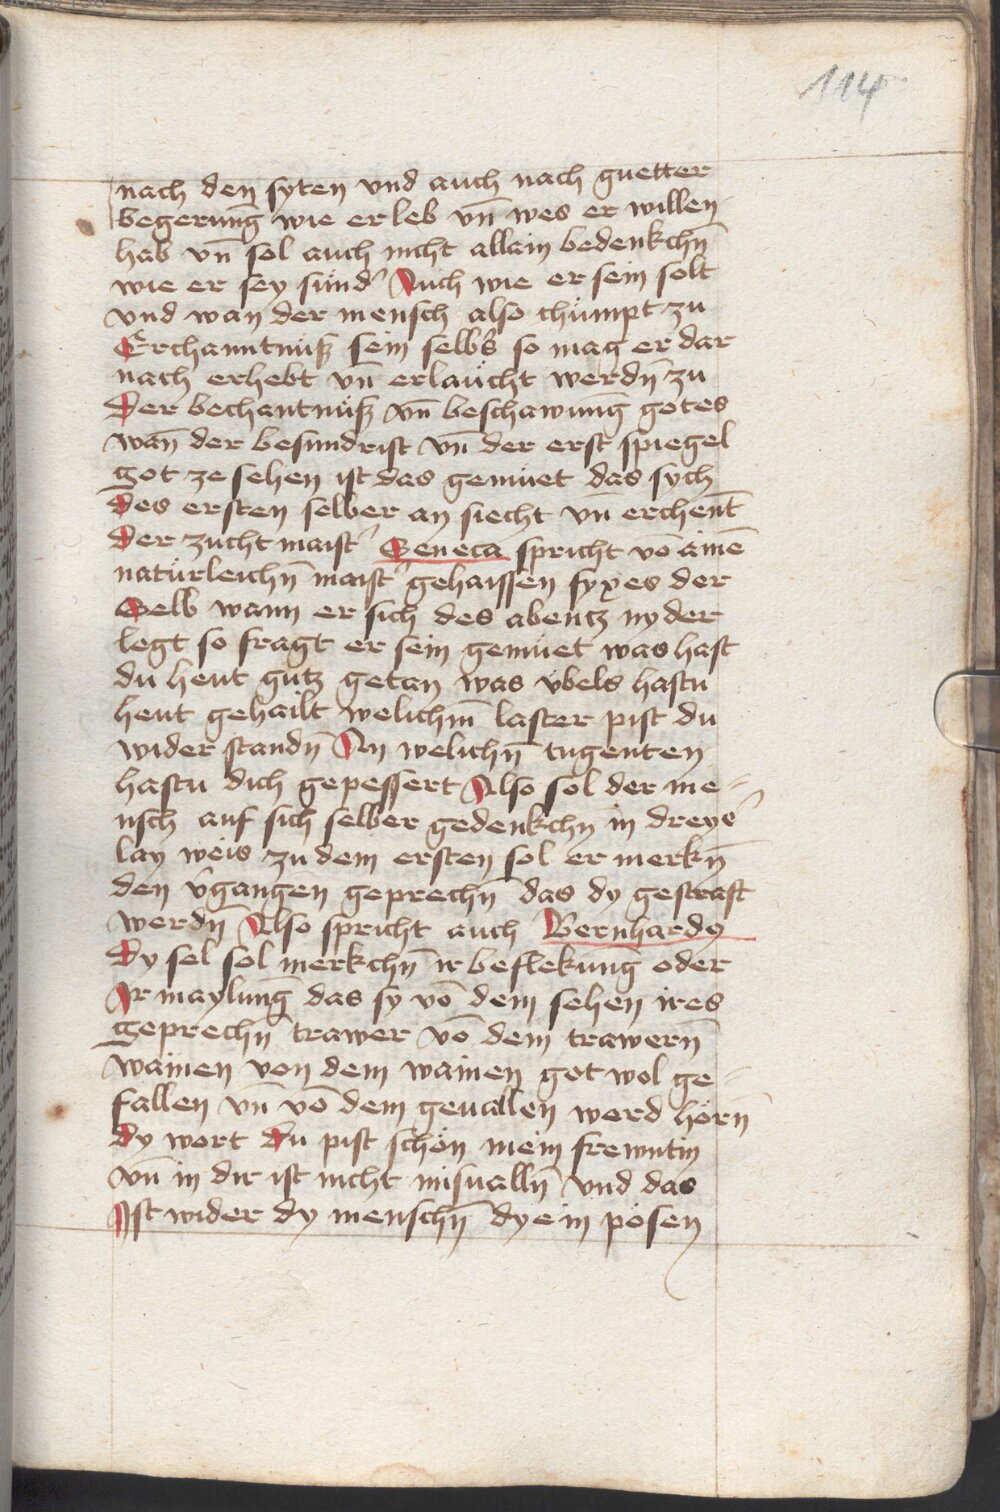 114
nach den syten vnd auch nach guetter
begerung wie er leb vn̄ wes er willen
hab vn̄ sol auch nicht allain bedenkchn̄
wie er sey sunder Auch wie er sein solt
vnd wan der mensch also chümpt zu
Erchanntnüß sein selbs so mag er dar
nach erhebt vn̄ erlaücht werdn̄ zu
Der bechantnüß vn̄ beschawung gotes
wan̄ der besundrist vn̄ der erst spiegel
got ze sehen ist das gemüet das sych
Des ersten selber an siecht vn̄ erchent
Der zucht maist' Seneca spricht vō aine̅
natürleichn̄ maist' gehaissen syxes der
Selb wann er sich des abentz nyder
legt so fragt er sein gemüet was hast
du heut gutz getan was vbels hastu
heut gehailt welichm̄ laster pist du
wider standn̄ An welichn̄ tugenten
hastu dich gepessert Also sol der me-
nsch auf sich selber gedenkchn̄ in dreye'
lay weis zu dem ersten sol er merkn̄
den v'gangen geprechn̄ das dy gestraft
werdn̄ Also spricht auch Bernhardꝯ
Dy sel sol merkchn̄ ir beflekung oder
Ir maylung das sy vō dem sehen ires
geprechn̄ trawer vō dem trawern̄
wainen von dem wainen got wol ge-
fallen vn̄ vō dem geuallen werd hörn̄
Dy wort Du pist schön mein frewntin
vn̄ in dir ist nicht misualln̄ vnd das
Ist wider dy menschn̄ dye in pösen